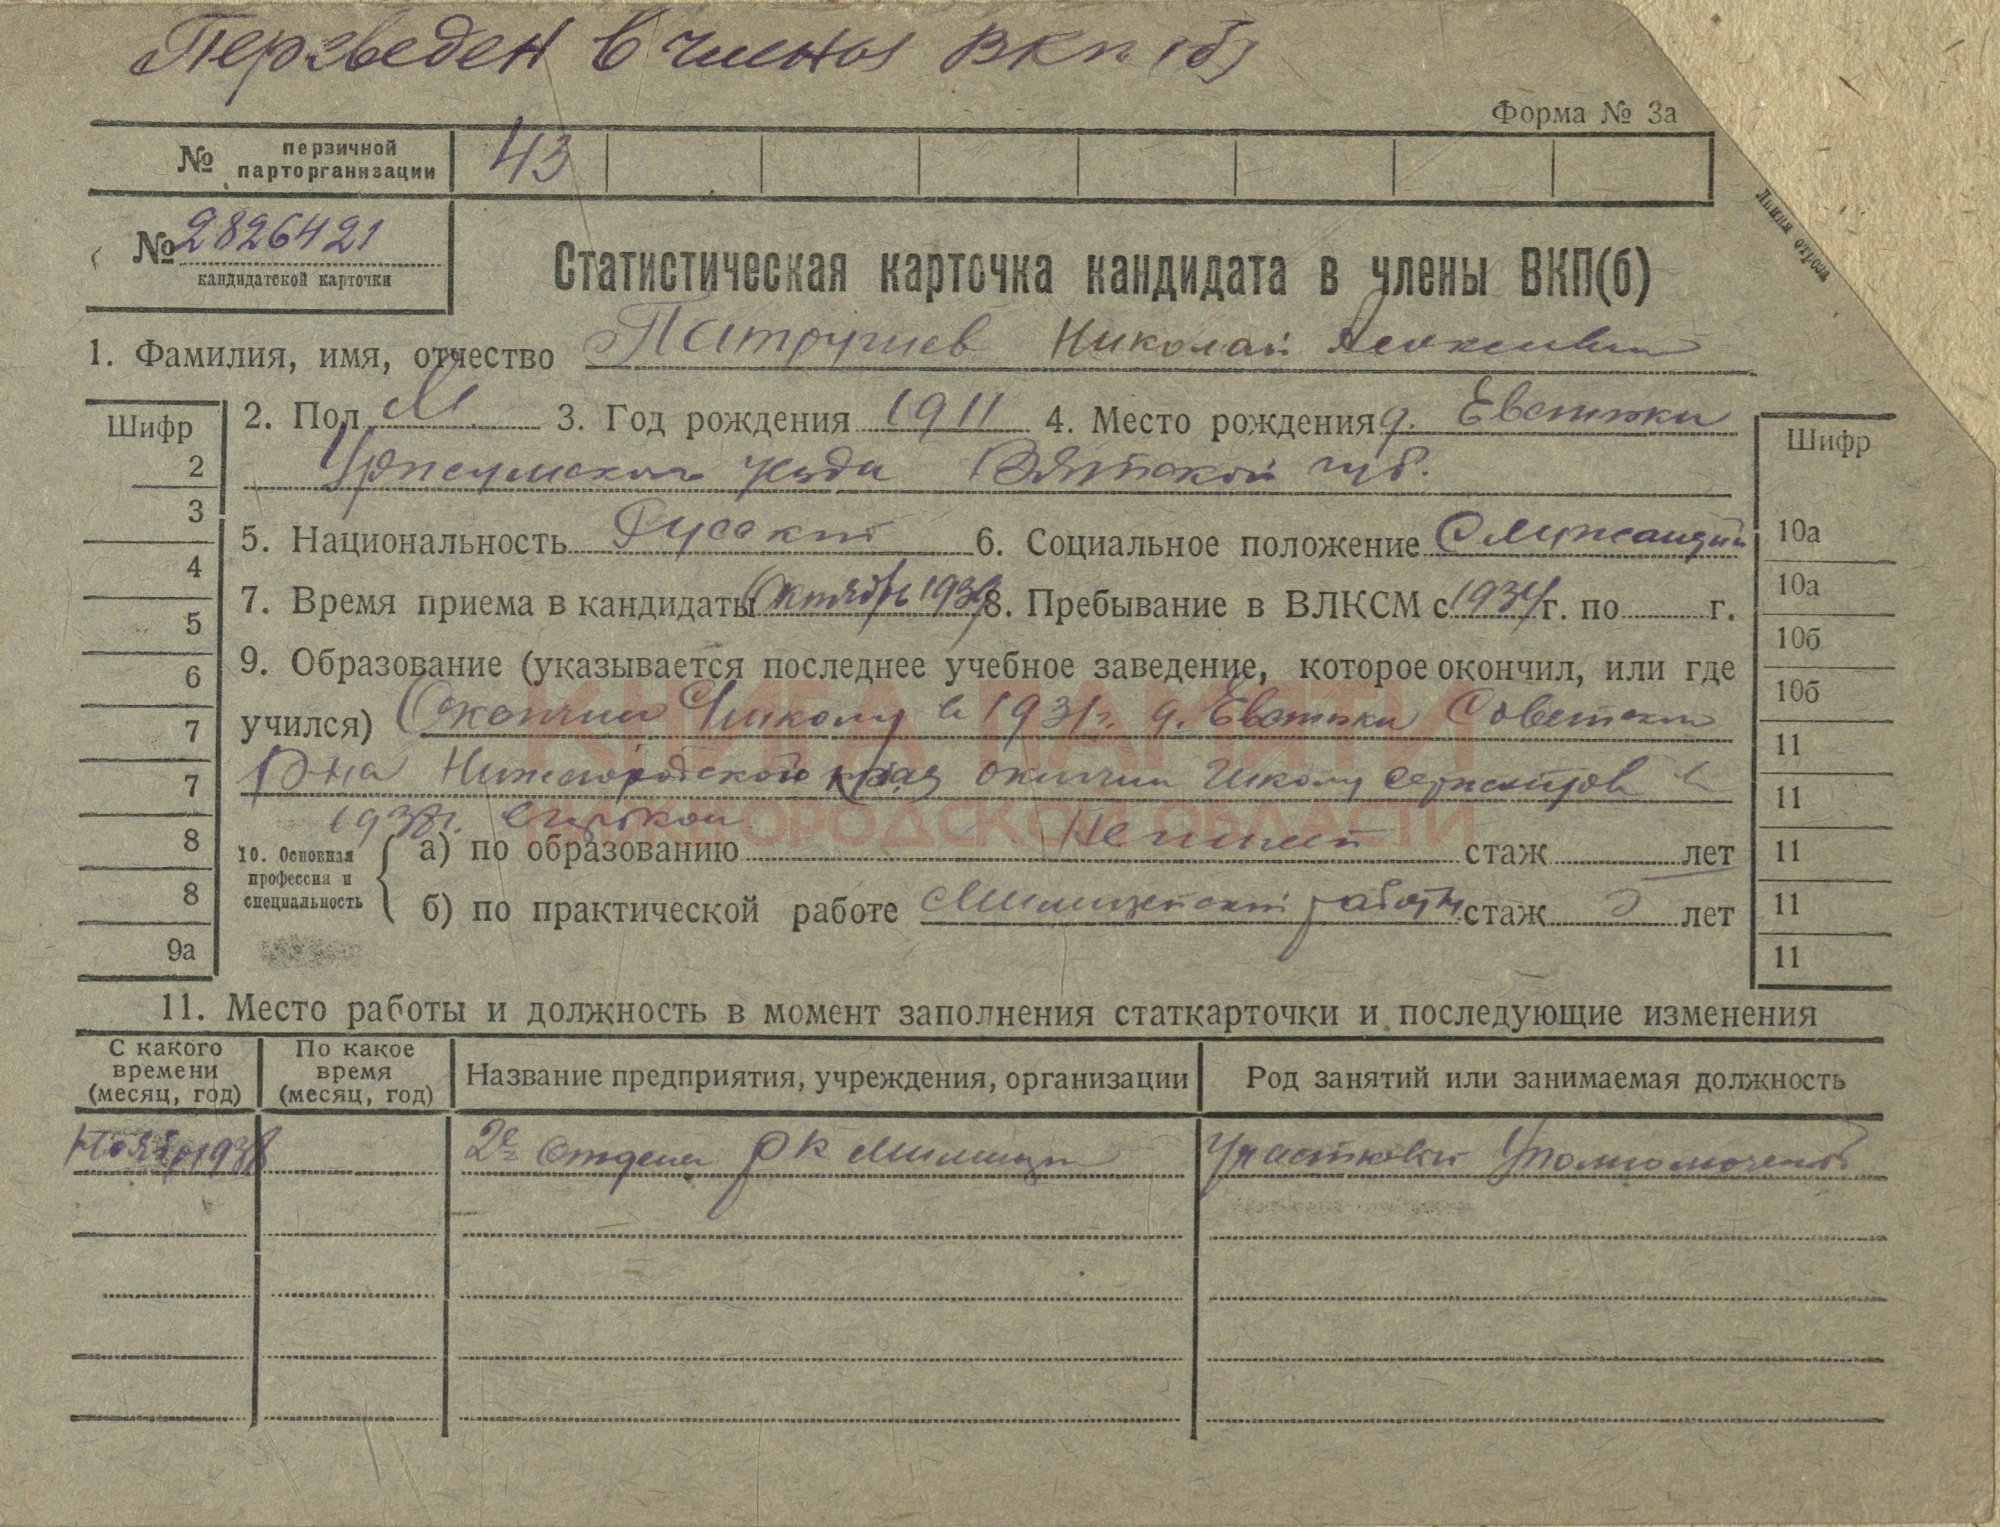 Переведен в члены ВКП(б)
Форма № 3а
№ первичной парторганизации 43
№ 2826421
кандидатской карточки
Линия отреза
Статистическая карточка кандидата в члены ВКП(б)
1. Фамилия, имя, отчество Патрушев Николай
2. Пол М 3. Год рождения 1911 4. Место рождения д.
Уржумского уезда Вятской губ.
5. Национальность Русский 6. Социальное положение Служащий
7. Время приема в кандидаты Октябрь 1939 8. Пребывание в ВЛКСМ с 1934 г. по г.
9. Образование (указывается последнее учебное заведение, которое окончил, или где
учился) Окончил Школу в 1931г. д. Советского
Р-на Нижегородского края окончил Школу сержантов в
1938г.
10. Основная профессия и специальность
а) по образованию Не имеет стаж лет
б) по практической работе Милицейский работн стаж лет
Шифр
2
3
4
5
6
7
7
8
8
9а
Шифр
10а
10а
10б
10б
11
11
11
11
11
КНИГА ПАМЯТИ
НИЖЕГОРОДСКОЙ ОБЛАСТИ
11. Место работы и должность в момент заполнения статкарточки и последующие изменения
С какого времени (месяц, год) По какое время (месяц, год) Название предприятия, учреждения, организации Род занятий или занимаемая должность
Ноябр 1938 2е Отделен РК Милиции Участковый Уполномоченый